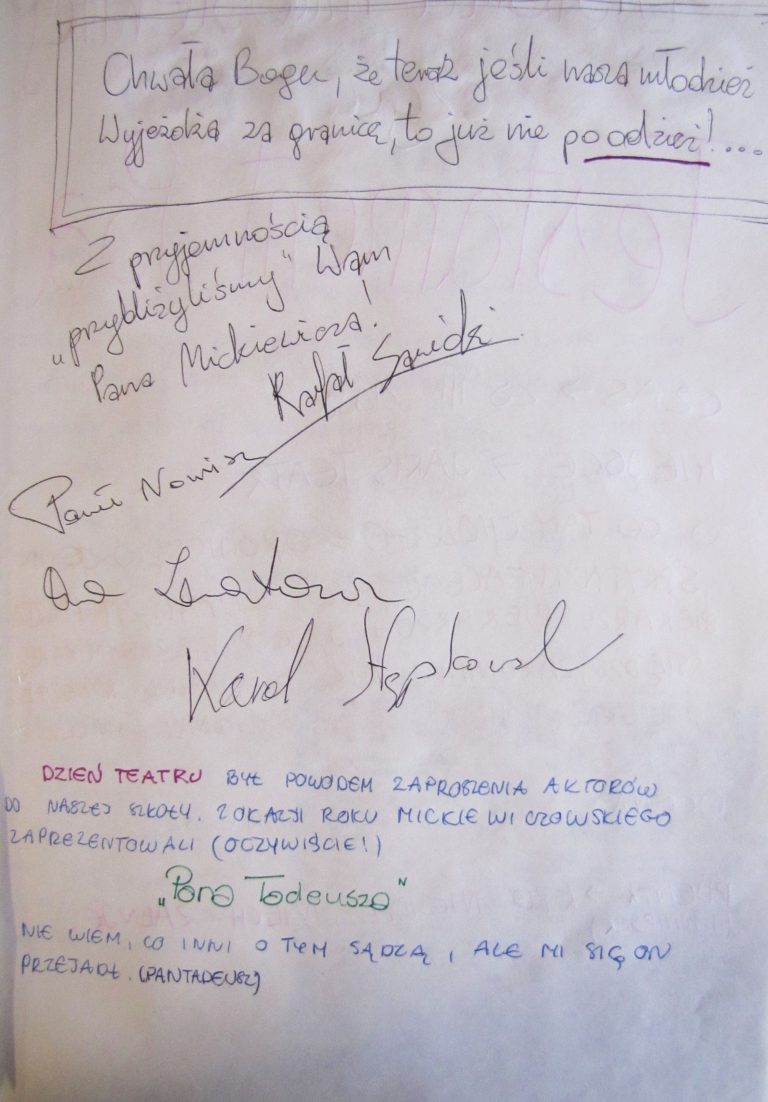 Chwała Bogu, że teraz jeśli nasza młodzież
Wyjeżdża za granicę, to już nie po odzież!...
Z przyjemnością
„przybliżyliśmy" Wam
Pana Mickiewicza!
Rafał Sawicki
Paweł Nowisz
Karol
DZIEŃ TEATRU BYŁ POWODEM ZAPROSZENIA AKTORÓW
DO NASZEJ SZKOŁY. Z OKAZJI ROKU MICKIEWICZOWSKIEGO
ZAPREZENTOWALI (OCZYWIŚCIE!)
„Pana Tadeusza"
NIE WIEM, CO INNI O TYM SĄDZĄ, ALE MI SIĘ ON
PRZEJADŁ. (PAN TADEUSZ)